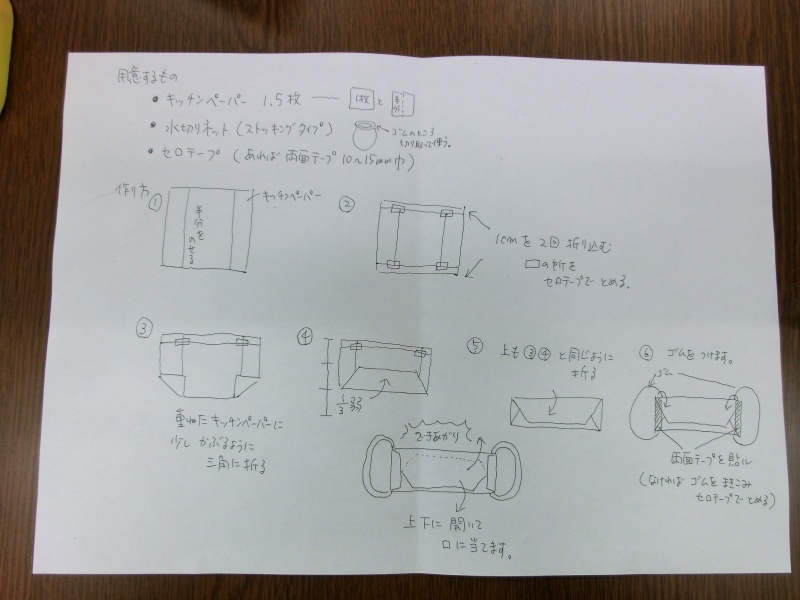 用意するもの
• キッチンペーパー 1.5枚 — 1枚 と 半分
• 水切りネット (ストッキングタイプ) ゴムのところ
切り取って使う。
• セロテープ (あれば 両面テープ 10〜15mm巾)
作り方
① キッチンペーパー
半分をのせる
②
1cmを 2回 折り込む
□の所を
セロテープで とめる。
③
重ねた キッチンペーパーに
少し かぶるように
三角に折る
④
1/3弱
⑤ 上も③④と同じように
折る
⑥ ゴムを つけます。
ゴム
両面テープを貼ル
(なければ ゴムを まきこみ
セロテープで とめる)
できあがり
上下に 開いて
口に当てます。